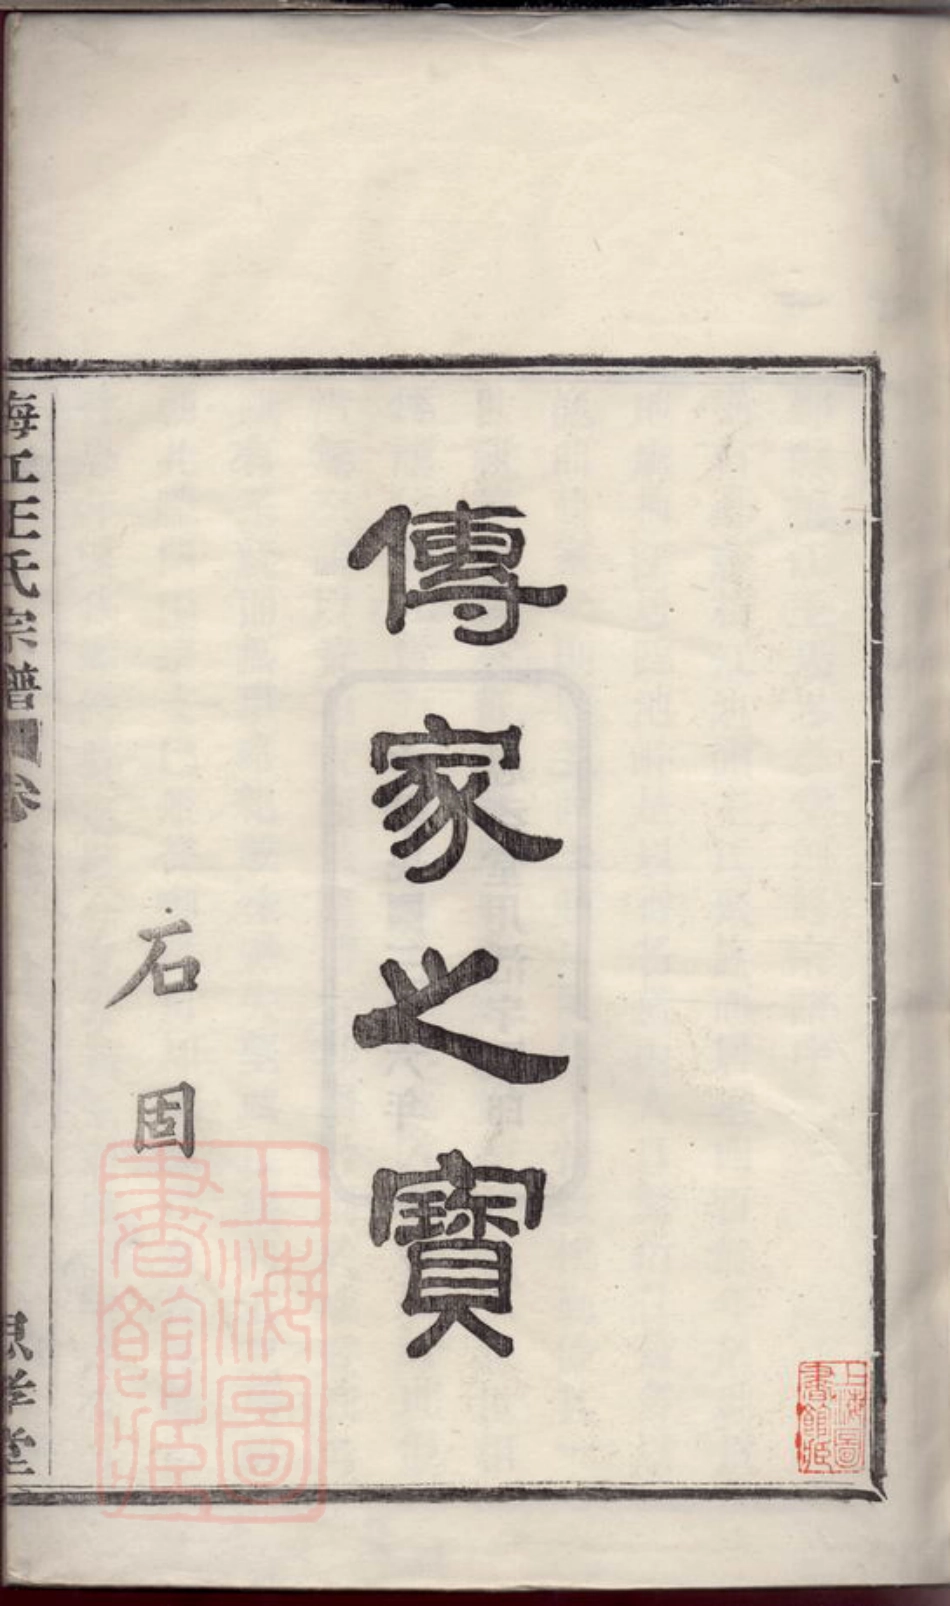 傳家之寶
石固
王氏宗譜
卷
上海圖書館藏
上海圖書館藏